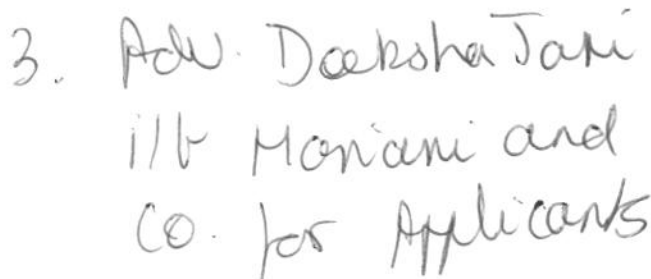 3. Adv. Deeksha Jani
i/b Maniani and
Co. for Applicants